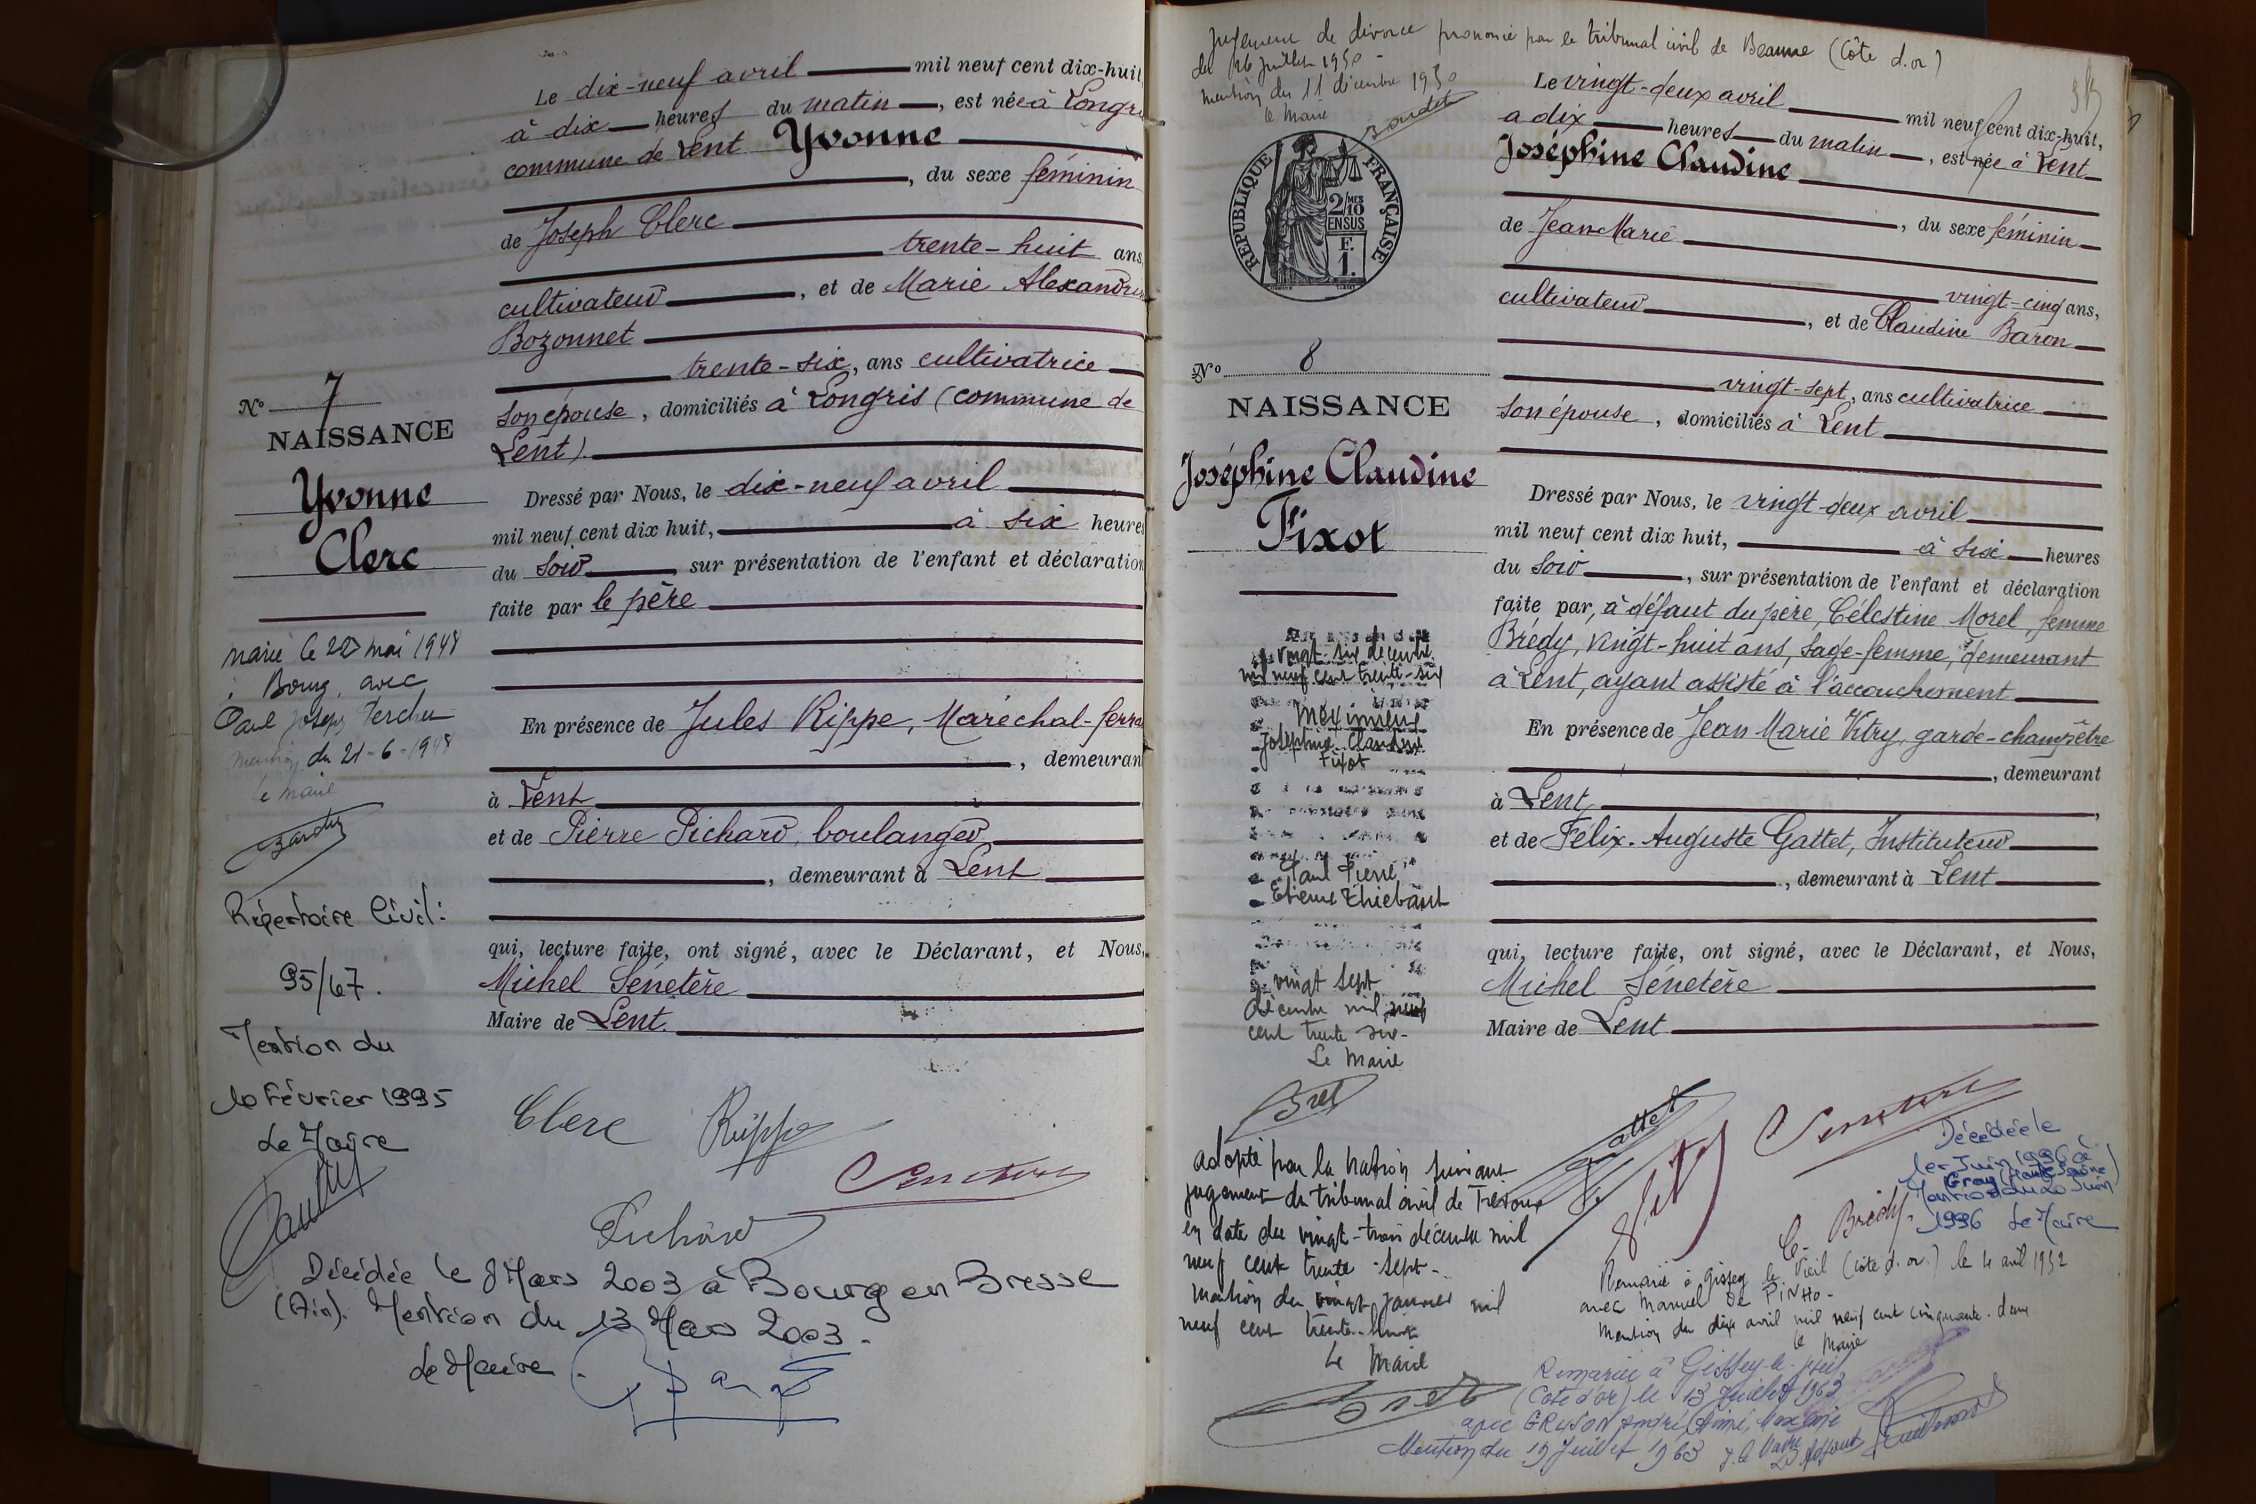 Le dix-neuf avril mil neuf cent dix-huit
à dix heures du matin, est née à Longri
commune de Lent Yvonne
, du sexe féminin
de Joseph Clerc
trente-huit ans
cultivateur, et de Marie Alexandrin
Bozonnet
trente-six, ans cultivatrice
son épouse, domiciliés à Longris (commune de
Lent).
N° 7
NAISSANCE
Yvonne
Clerc
Dressé par Nous, le dix-neuf avril
mil neuf cent dix huit, à six heures
du soir sur présentation de l'enfant et déclaration
faite par le père
En présence de Jules Rippe, Maréchal-ferra
, demeuran
à Lent
et de Pierre Pichard, boulanger
, demeurant à Lent
qui, lecture faite, ont signé, avec le Déclarant, et Nous,
Michel Sénetère
Maire de Lent
marié le mai 1948
à Bourg, avec
Paul Joseph
mention du 21-6-1948
le maire
Répertoire Civil:
95/67.
Mention du
10 Février 1995
Le Maire
Clerc Rippe
Pichard
Décédée le 8 Mars 2003 à Bourg en Bresse
(Ain). Mention du 13 Mars 2003.
Le Maire
Jugement de divorce prononcé par le tribunal civil de Beaune (Côte d.or)
du 26 juillet 1950
mention du 11 décembre 1950
le Maire
REPUBLIQUE FRANÇAISE
2/10 MES
EN SUS
F.
1.
N° 8
NAISSANCE
Joséphine Claudine
Fixot
Le vingt-deux avril mil neuf cent dix-huit,
a dix heures du matin, est née à Lent
Joséphine Claudine
, du sexe féminin
de Jean-Marie
vingt-cinq ans,
cultivateur, et de Claudine Baron
vingt-sept, ans cultivatrice
son épouse, domiciliés à Lent
Dressé par Nous, le vingt-deux avril
mil neuf cent dix huit, à six heures
du soir, sur présentation de l'enfant et déclaration
faite par, à défaut du père, Célestine Morel, femme
Brédy, vingt-huit ans, sage-femme, demeurant
à Lent, ayant assisté à l'accouchement
En présence de Jean Marie Vitry, garde-champêtre
, demeurant
à Lent,
et de Félix-Auguste Gattet, Instituteur
, demeurant à Lent
qui, lecture faite, ont signé, avec le Déclarant, et Nous,
Michel Sénetère
Maire de Lent
vingt-six décembre
mil neuf cent trente-six
Meximieux
Joséphine Claudine
Fixot
Paul Pierre
Etienne Thiebaut
vingt sept
décembre mil neuf
cent trente six-
Le Maire
adopté par la nation suivant
jugement du tribunal civil de Trévoux
en date du vingt-trois décembre mil
neuf cent trente-sept-
mention du vingt janvier mil
neuf cent trente-huit
Le Maire
Gattet
C. Brédy
Décédée le
1er Juin 1996 à
Gray (Haute Saône)
Mention du 20 Juin
1996 Le Maire
Remarié à Gissey le Vieil (Côte d.or.) le 4 avril 1952
avec Manuel DE PINHO-
Mention du dix avril mil neuf cent cinquante-deux
le Maire
Remariée à Gissey-le-Vieil
(Côte d'or) le 13 Juillet 1963
avec GRUSON André, Aimé,
Mention du 19 Juillet 1963